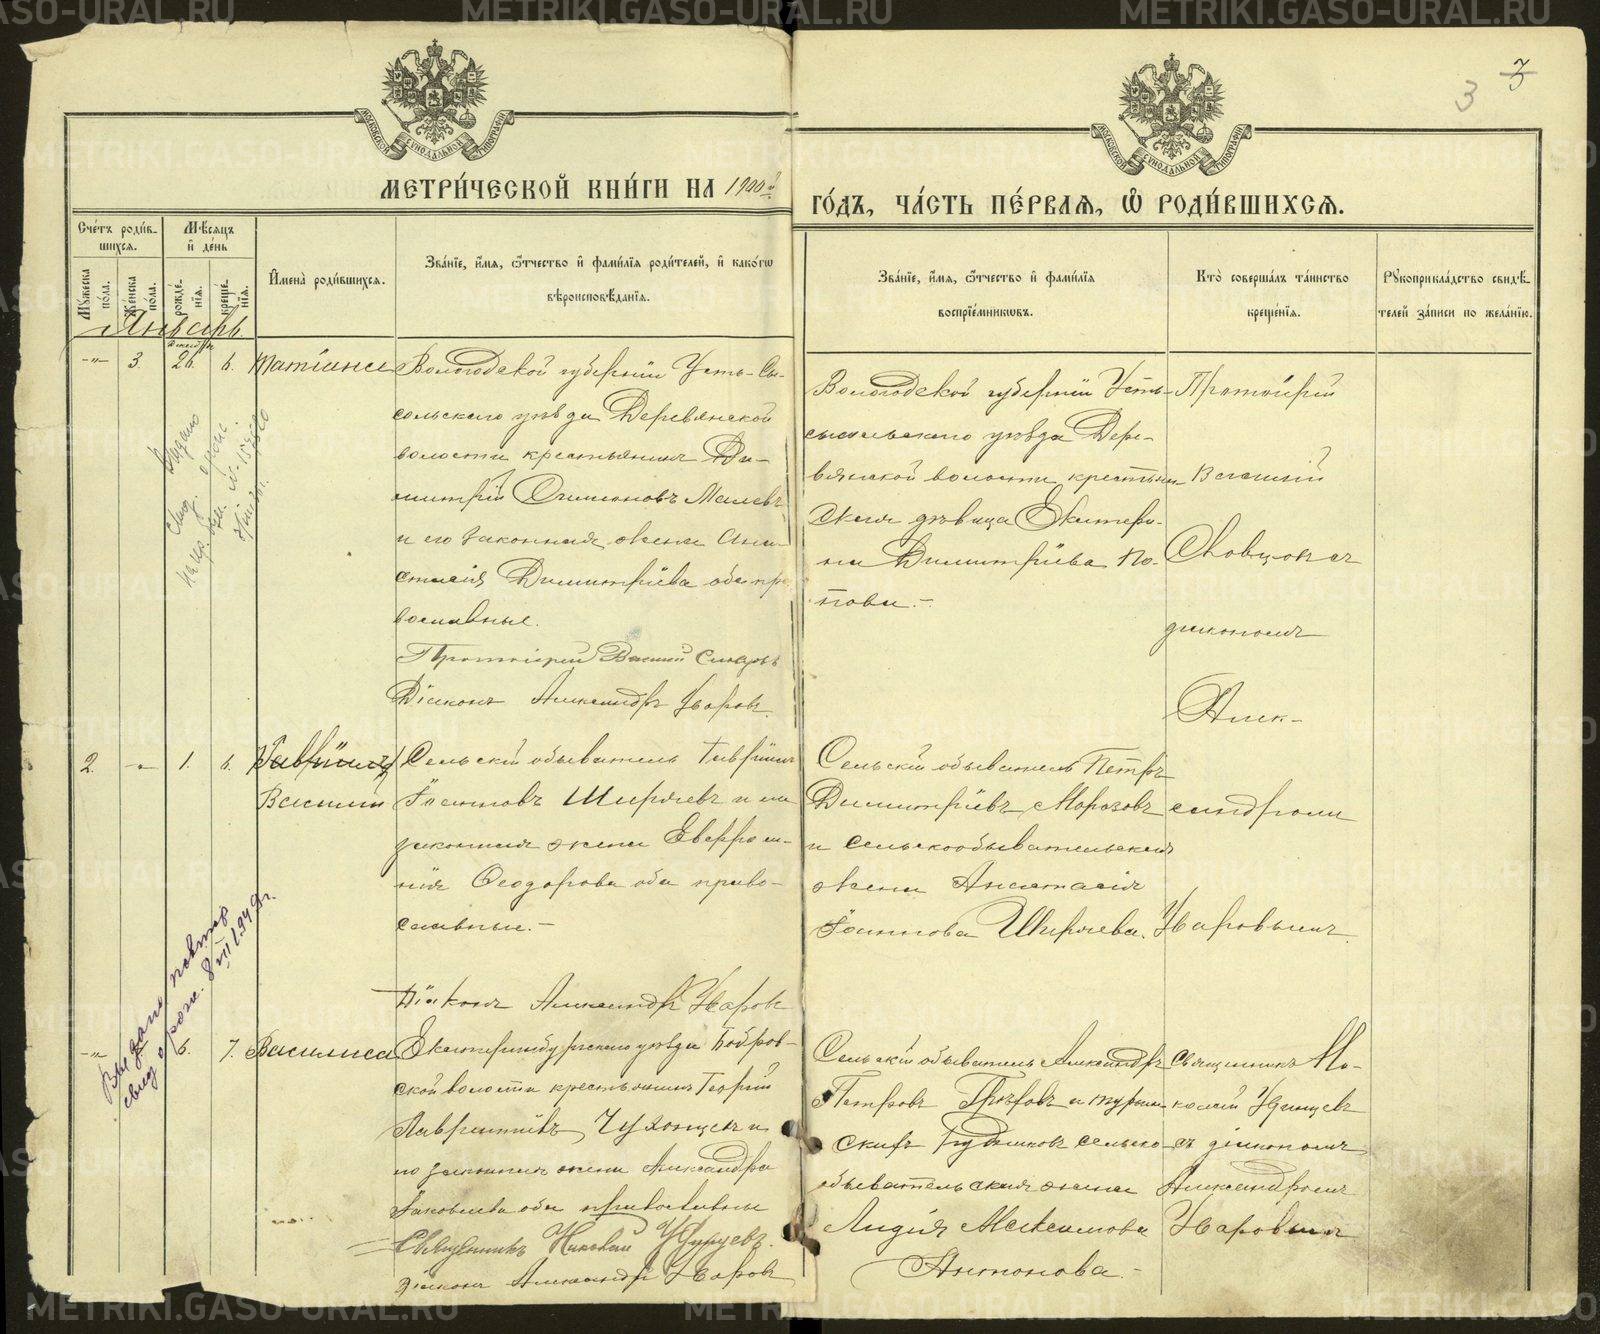 3
МЕТРИ́ЧЕСКОЙ КНИ́ГИ НА 1900й
ГО́ДЪ, ЧА́СТЬ ПЕ́РВАЯ, Ѡ РОДИ́ВШИХСЯ.
МОСКОВСКОЙ СѴНОДАЛЬНОЙ ТИПОГРАФІИ
МОСКОВСКОЙ СѴНОДАЛЬНОЙ ТИПОГРАФІИ
Сче́тъ роди́в-
шихся.
Мѣ́сяцъ
и҆ де́нь
Мꙋ́жеска по́ла.
Же́нска по́ла.
рожде́-нїѧ.
креще́-нїѧ.
И҆мена̀ роди́вшихся.
Зва́нїе, и҆́мя, ѻ҆́тчество и҆ фами́лїя роди́телей, и҆ како́гѡ
вѣроисповѣ́данїя.
Зва́нїе, и҆́мя, ѻ҆́тчество и҆ фами́лїя
воспрїе́мниковъ.
Кто̀ соверша́лъ та́инство
креще́нїя.
Рꙋкоприкла́дство свидѣ́-
телей за́писи по жела́нїю.
Январь
Декабря
-"- 3. 26. 6. Татіана
Вологодской губерніи Усть-Сы-
сольскаго уѣзда Деревянской
волости крестьянинъ Ди-
митрій Симеоновъ Малевъ
и его законная жена Ана-
стасія Димитріева оба пра
вославные.
Протоіерей Василій Словцовъ
Діаконъ Александръ Уваровъ
Вологодской губерніи Усть-
сысольскаго уѣзда Дере-
вянской волости крестьян-
ская дѣвица Екатери-
на Димитріева По-
пова.-
Протоіерей
Василій
Словцовъ съ
діакономъ
Алек-
2. -"- 1. 6. Гавріилъ
Василій
Сельскій обыватель Гавріилъ
Іоанновъ Ширяевъ и его
законная жена Евфро си-
нія Ѳеодорова оба право-
славные.-
Діаконъ Александръ Уваровъ
Сельскій обыватель Петръ
Димитріевъ Морозовъ
и сельскообывательская
жена Анастасія
Іоаннова Ширяева.
сандромъ
Уваровымъ.
-"- 6. 7. Василиса
Екатеринбургскаго уѣзда Бобров-
ской волости крестьянинъ Георгій
Лаврентіевъ Чухонцевъ и
его законная жена Александра
Іаковлева оба православные
Священникъ Николай Удинцевъ.
Діаконъ Александръ Уваровъ
Сельскій обыватель Александръ
Петровъ и турин-
ская сельско
обывательская жена
Лидія Максимова
Антонова.-
Священникъ Ни-
колай Удинцевъ
съ діакономъ
Александромъ
Уваровымъ
Выдано
свид. о рожд.
Выдано повтор
свид о рожд. 8/VII 1949 г.
METRIKI.GASO-URAL.RU